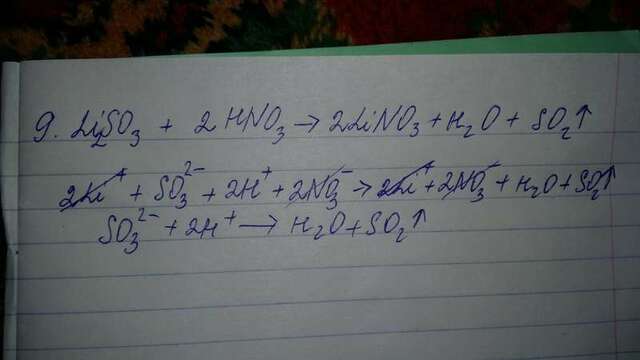 9. Li₂SO₃ + 2HNO₃ → 2LiNO₃ + H₂O + SO₂↑
2Li⁺ + SO₃²⁻ + 2H⁺ + 2NO₃⁻ → 2Li⁺ + 2NO₃⁻ + H₂O + SO₂↑
SO₃²⁻ + 2H⁺ → H₂O + SO₂↑